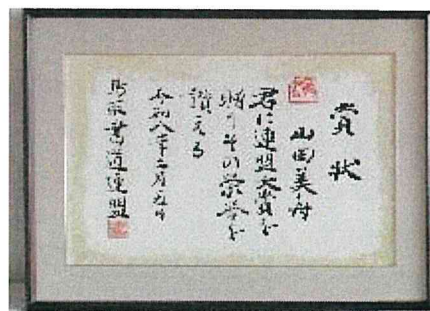 賞状
山田美舟
君に連盟大賞を
贈りその栄誉を
讃える
令和八年二月五日
書道連盟